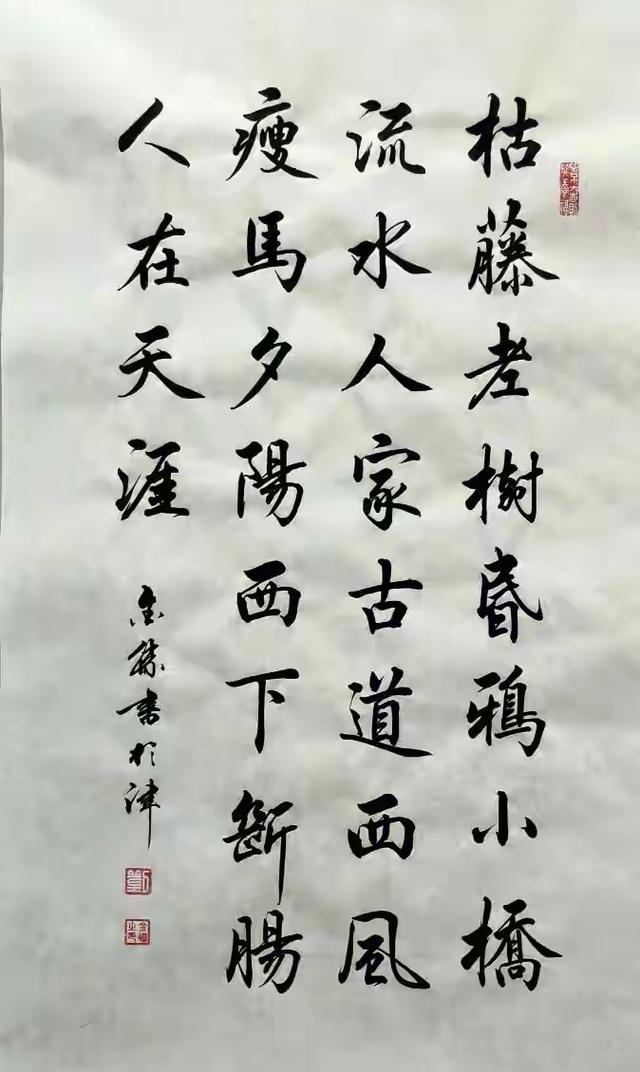 枯藤老樹昏鴉小橋
流水人家古道西風
瘦馬夕陽西下斷腸
人在天涯
書於津